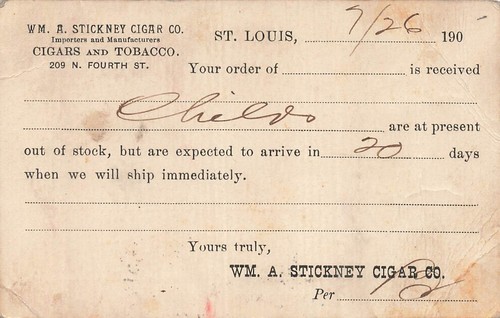 WM. A. STICKNEY CIGAR CO.
Importers and Manufacturers
CIGARS AND TOBACCO.
209 N. FOURTH ST.
ST. LOUIS, 9/26 190
Your order of is received
Childs are at present
out of stock, but are expected to arrive in 20 days
when we will ship immediately.
Yours truly,
WM. A. STICKNEY CIGAR CO.
Per